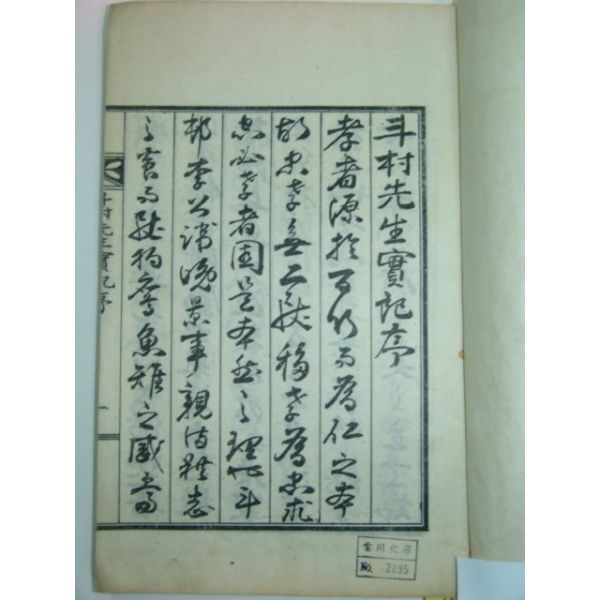 斗村先生實記序
孝者源於百行而爲仁之本
故忠孝無二致移孝爲忠求
忠必孝者固是本然之理也斗
村李公諱晩景事親備體志
之養而致有烏魚雉之感當
斗村先生實記序
一
No. 2895